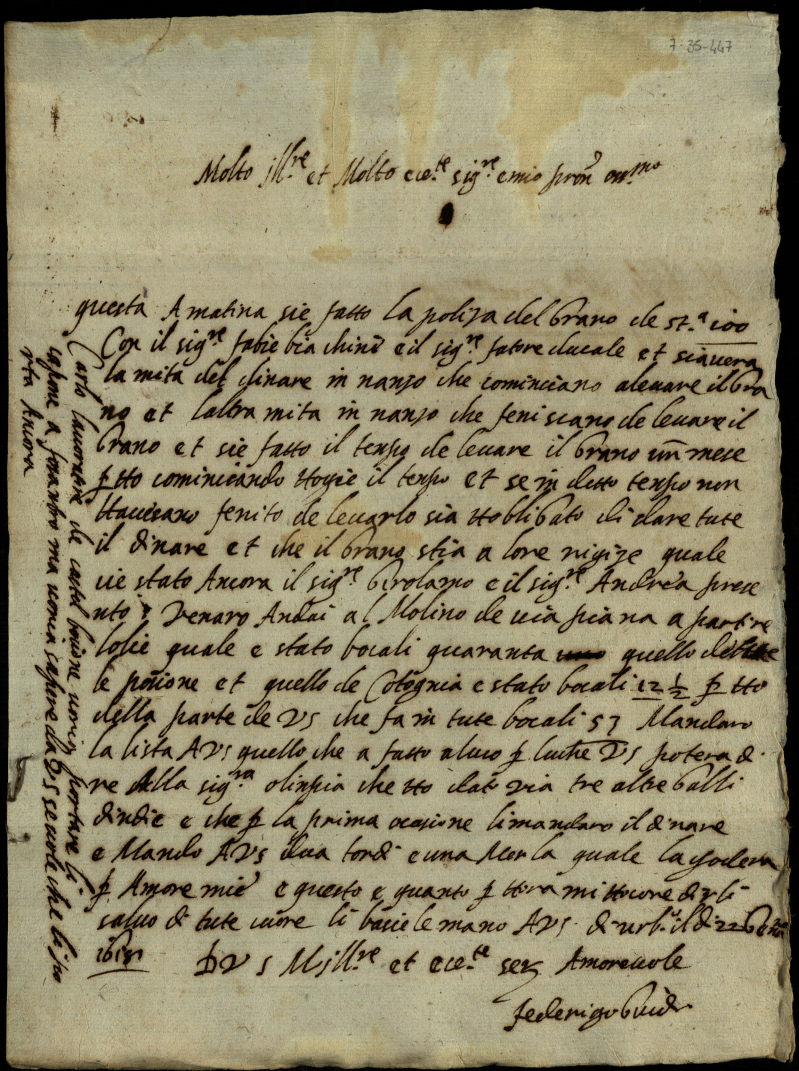 7-35-447
Molto Ill.re et Molto ece.te sig.re e mio pron omo
questa Amatina sie fatto la polisa del Grano de st.a 100
Con il sig.re fabie bia chini e il sig.re fatore ducale et siavera
la mita del dinare in nanso che cominciano alevare il Gra
no et laltra mita in nanso che feniscano de levare il
Grano et sie fatto il tenpo de levare il Grano un mese
p tto cominciando ttogie il tenpo et se in detto tenpo non
ttavesano fenito de levarlo sia ttobligato di dare tute
il dinare et che il Grano stia a lore quale
vie stato Ancora il sig.re Girolamo e il sig.re Andrea prese
nto Venaro Andai al Molino de via piana a partire
lolie quale e stato bocali quaranta quello de
le et quello de Cotognia e stato bocali 12 ½ p tto
della parte de VS che fa in tute bocali 53 Mandaro
la lista AVS quello che a fatto p VS potera di
re Alla sig.ra olinpia che tto dato via tre altre Galli
dindie e che p la prima ocasione li mandaro il dinare
e Mando AVS dua tordi e una Merla quale la godera
p Amore mie e questo e quanto p ttora mi ttocore dirli
salvo di tute cuore li bacie le mano AVS di urb.o il di 22
D V S M Ill.re et ece.te ser Amorevole
federigo Guidi
Carlo lavoratore de castel portare li
capone a ma voria sapere da VS se vole che li po
rta Ancora